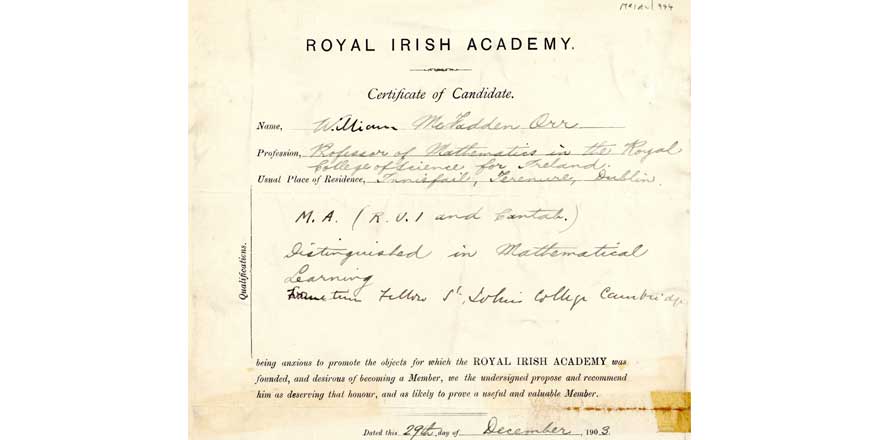 ROYAL IRISH ACADEMY.
Certificate of Candidate.
Name, William McFadden Orr
Profession, Professor of Mathematics in the Royal
College of Science for Ireland.
Usual Place of Residence, Innisfail, Terenure, Dublin.
Qualifications.
M.A. (R.U.I and Cantab.)
Distinguished in Mathematical
Learning
Fellow St. John's College Cambridge
being anxious to promote the objects for which the ROYAL IRISH ACADEMY was
founded, and desirous of becoming a Member, we the undersigned propose and recommend
him as deserving that honour, and as likely to prove a useful and valuable Member.
Dated this 29th day of December 1903.